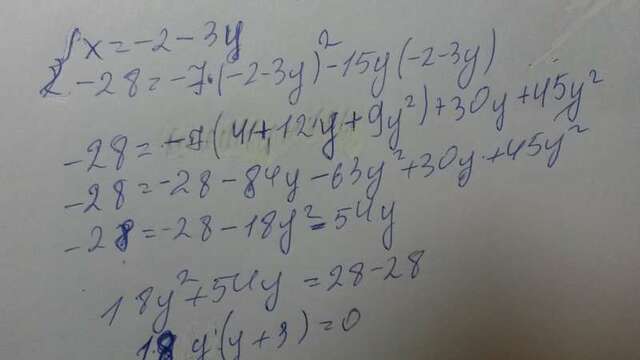 { x = -2 - 3y
-28 = -7·(-2-3y)² - 15y(-2-3y)
-28 = -7(4+12y+9y²)+30y+45y²
-28 = -28 - 84y - 63y² + 30y + 45y²
-28 = -28 - 18y² = 54y
18y² + 54y = 28 - 28
18y(y+3) = 0